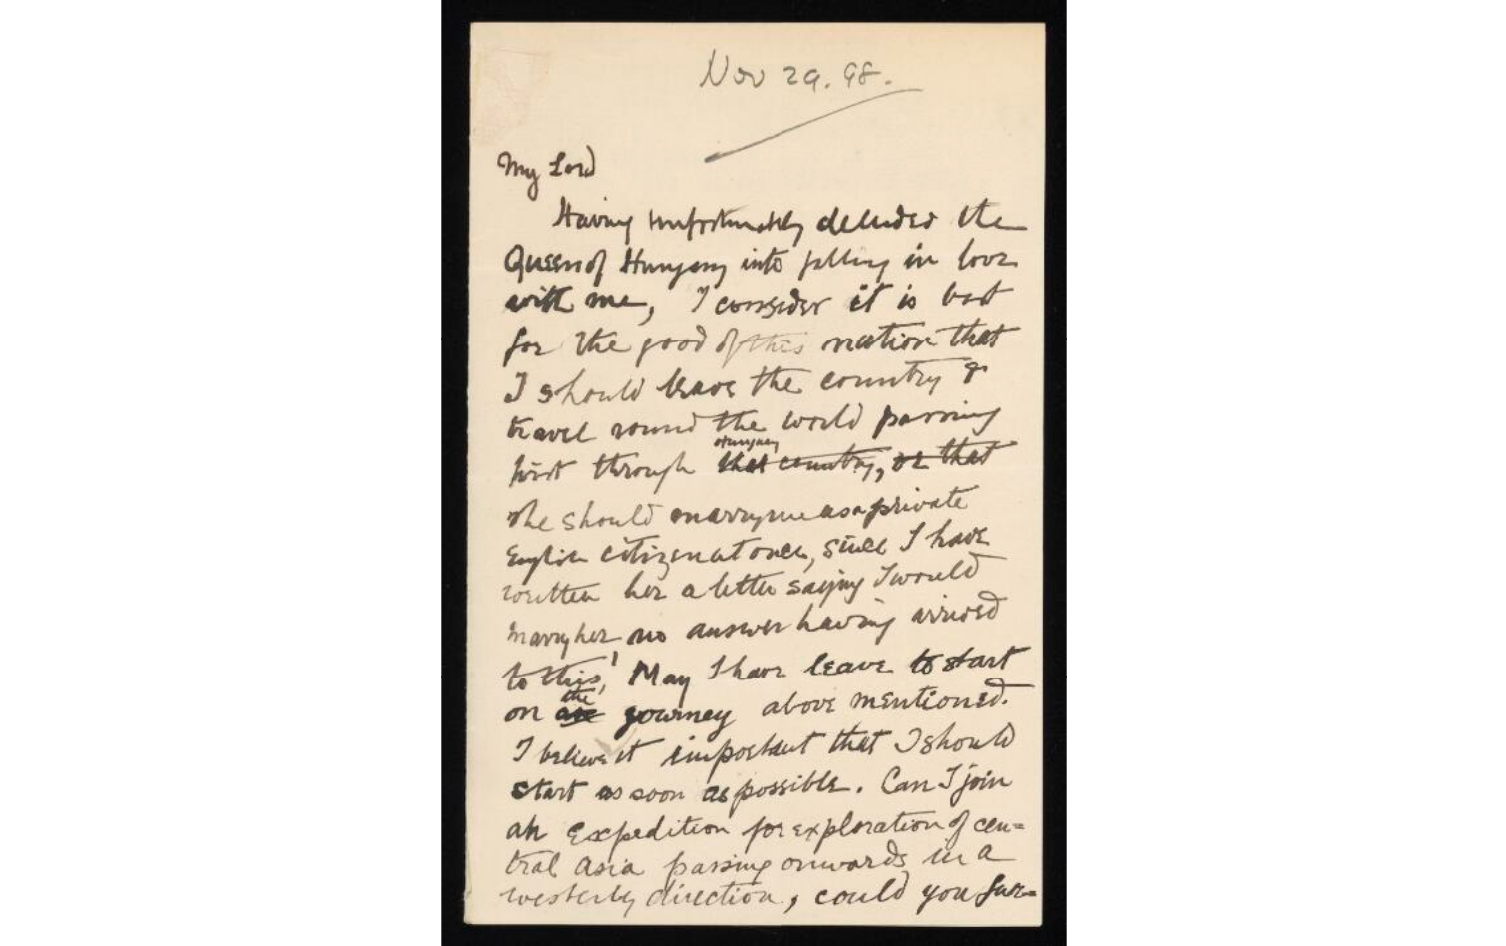 Nov 29. 98.
My Lord
Having unfortunately deluded the
Queen of Hungary into falling in love
with me, I consider it is best
for the good of this nation that
I should leave the country &
travel round the world passing
first through Hungary that country, or that
she should marry me as a private
English citizen at once, since I have
written her a letter saying I would
marry her, no answer having arrived
to this, May I have leave to start
on the journey above mentioned.
I believe it important that I should
start as soon as possible. Can I join
an Expedition for exploration of cen=
tral Asia passing onwards in a
westerly direction, could you fur=